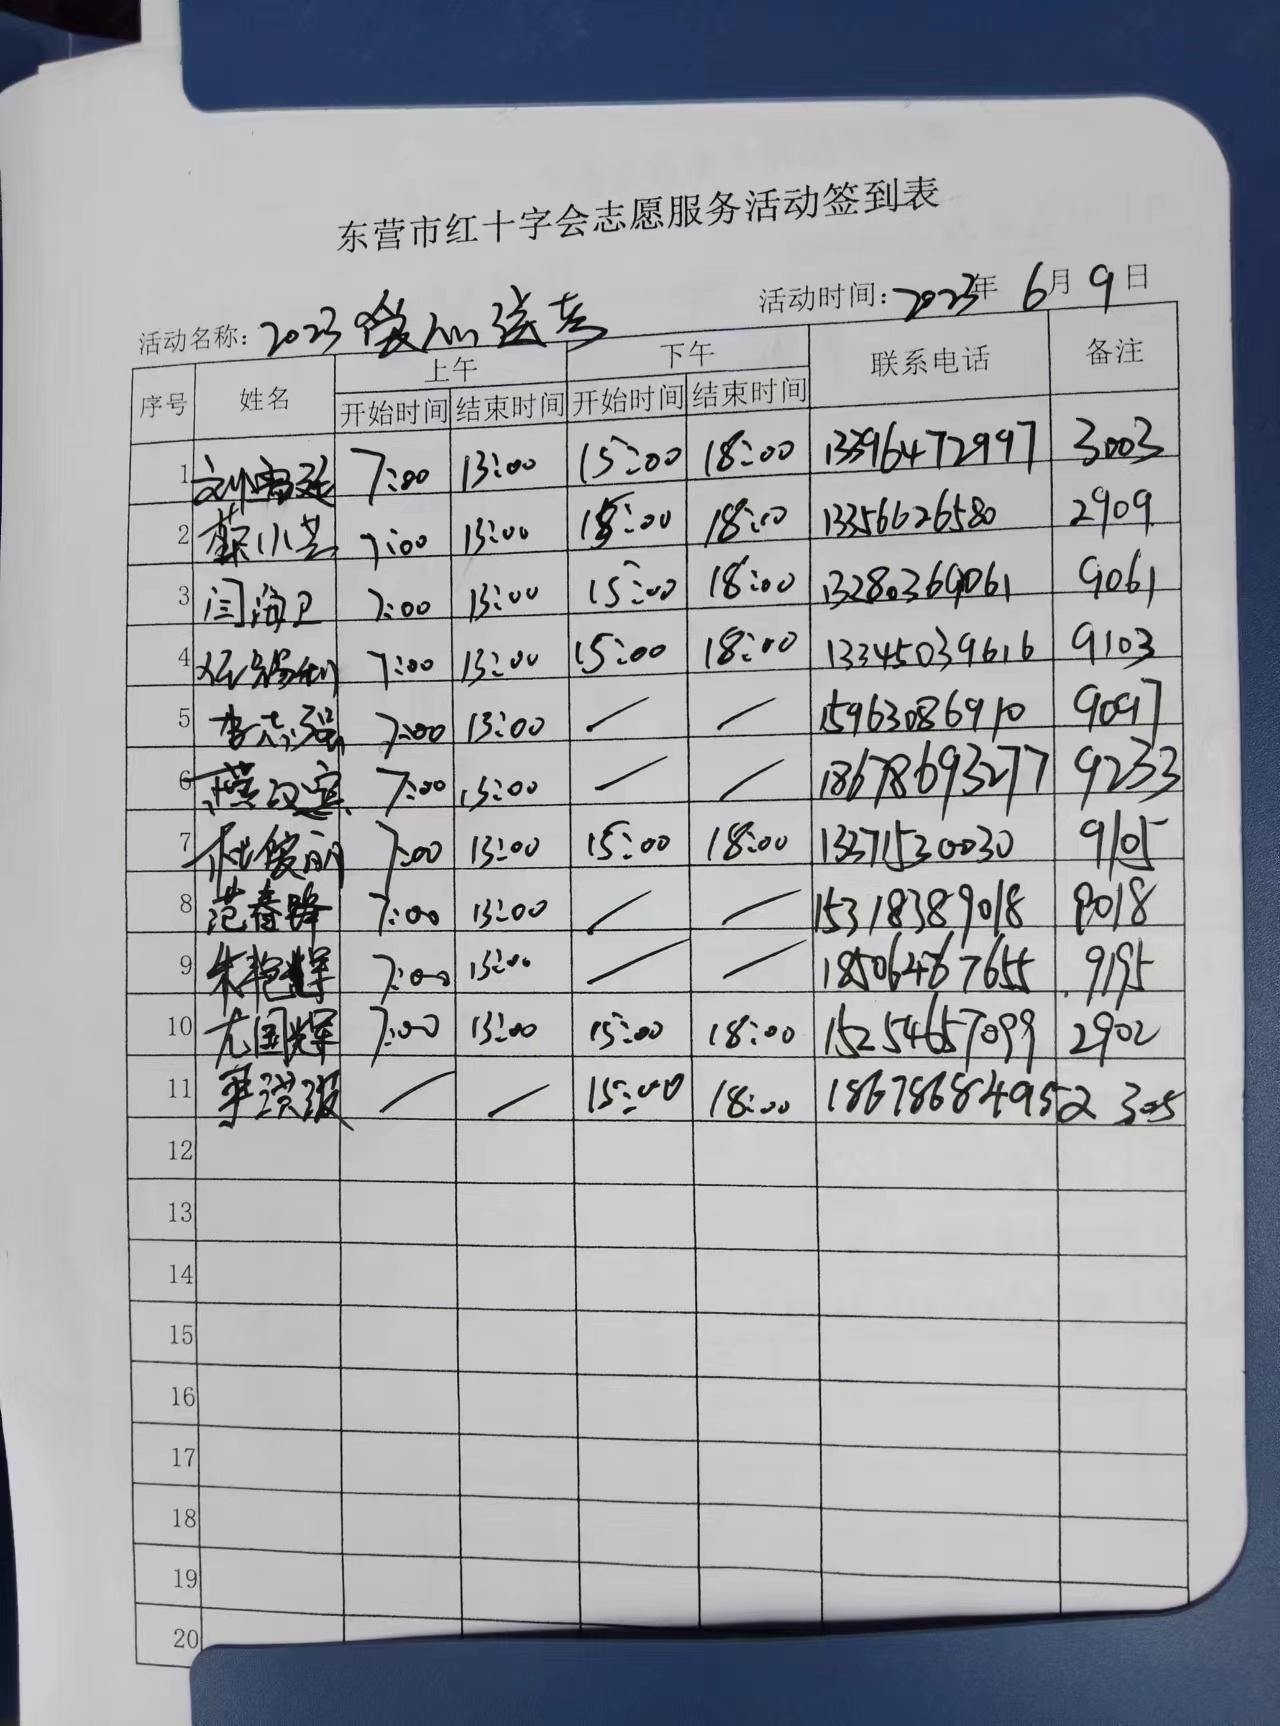 东营市红十字会志愿服务活动签到表
活动名称: 2023爱心送考 活动时间: 2023年 6月 9日
序号 姓名 上午 下午 联系电话 备注
开始时间 结束时间 开始时间 结束时间
1 7:00 13:00 15:00 18:00 13396472997 3003
2 蔡小芸 7:00 13:00 15:00 18:00 13356626580 2909
3 闫海卫 7:00 13:00 15:00 18:00 13280369061 9061
4 7:00 13:00 15:00 18:00 13345039616 9103
5 李志强 7:00 13:00 / / 15963086910 9097
6 7:00 13:00 / / 18678693277 9233
7 杜俊丽 7:00 13:00 15:00 18:00 13371530030 9105
8 范春路 7:00 13:00 / / 15318389018 8018
9 朱艳辉 7:00 13:00 / / 18506467655 9195
10 尤国辉 7:00 13:00 15:00 18:00 15254657099 2902
11 / / 15:00 18:00 18678684952 305
12
13
14
15
16
17
18
19
20